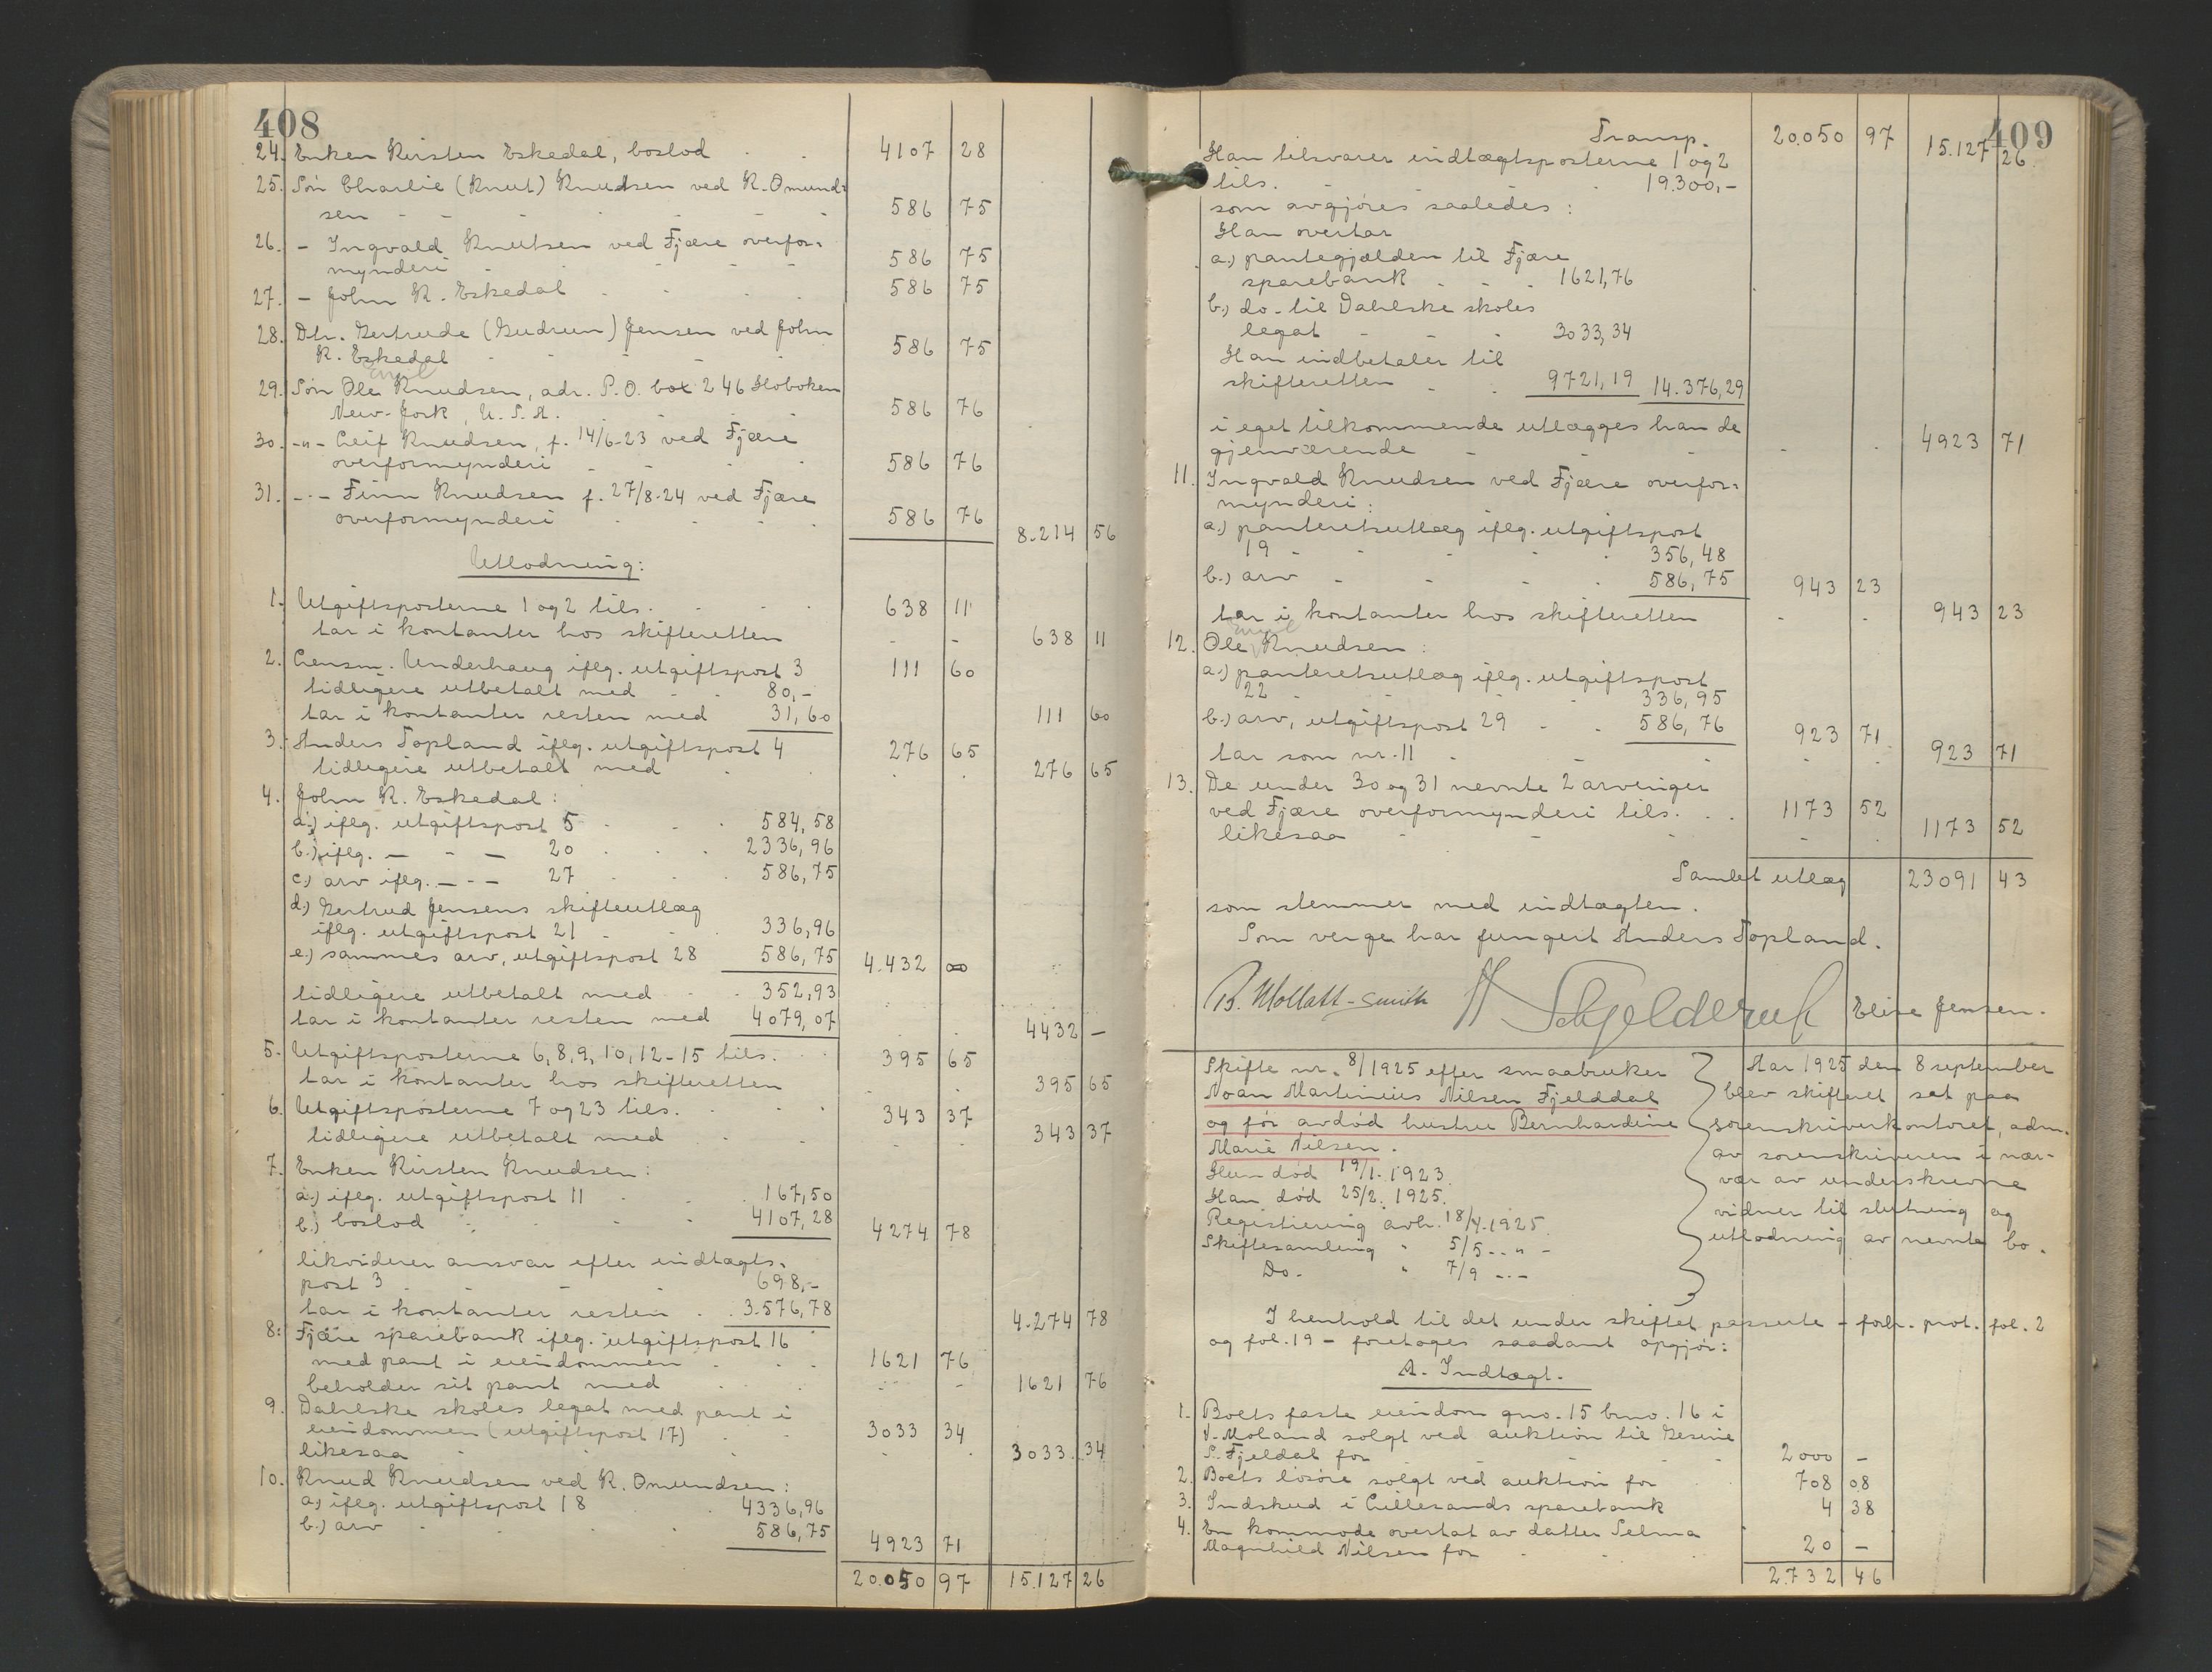 408
24. Enken Kirsten Eskedal, boslod - - 4107 28
25. Søn Charlie (Knut) Knudsen ved K. Omund-
sen - - - - - - 586 75
26. - Ingvald Knutsen ved Fjære overfor-
mynderi - - - - 586 75
27. - John K. Eskedal - - - - 586 75
28. Dtr. Gertrude (Gudrun) Jensen ved John
K. Eskedal - - - - 586 75
Emil
29. Søn Ole Knudsen, adr. P.O. box 246 Hoboken
New-Jork, U.S.A. - - - - 586 76
30. -"- Leif Knudsen, f. 14/6-23 ved Fjære
overformynderi - - - - 586 76
31. -"- Finn Knudsen f. 27/8-24 ved Fjære
overformynderi - - - - 586 76 8.214 56
Utlodning:
1. Utgiftsposterne 1 og 2 tils. - - - 638 11
tar i kontanter hos skifteretten - - 638 11
2. Lensm. Underhaug iflg. utgiftspost 3 111 60
tidligere utbetalt med - - 80,-
tar i kontanter resten med 31,60 111 60
3. Anders Topland iflg. utgiftspost 4 276 65
tidligere utbetalt med - - - 276 65
4. John K. Eskedal:
a.) iflg. utgiftspost 5 - - - 584,58
b.) iflg. - - - 20 - - - 2336,96
c.) arv iflg. - - - 27 - - - 586,75
d.) Gertrud Jensens skifteutlæg
iflg. utgiftspost 21 - - 336,96
e.) sammes arv, utgiftspost 28 586,75 4.432 00
tidligere utbetalt med - - 352,93
tar i kontanter resten med 4079,07 4432 -
5. Utgiftsposterne 6, 8, 9, 10, 12-15 tils. - - 395 65
tar i kontanter hos skifteretten - - 395 65
6. Utgiftsposterne 7 og 23 tils. - - - 343 37
tidligere utbetalt med - - - 343 37
7. Enken Kirsten Knudsen:
a.) iflg. utgiftspost 11 - - - 167,50
b.) boslod - - - - 4107,28 4274 78
likviderer ansvar efter indtægts-
post 3 - - - - 698,-
tar i kontanter resten - - 3.576,78 4.274 78
8. Fjære sparebank iflg. utgiftspost 16
med pant i eiendommen - - - 1621 76
beholder sit pant med - - - 1621 76
9. Dahlske skoles legat med pant i
eiendommen (utgiftspost 17) - - 3033 34
likesaa - - - - 3033 34
10. Knud Knudsen ved K. Omundsen:
a.) iflg. utgiftspost 18 - - 4336,96
b.) arv - - - - 586,75 4923 71
20.050 97 15.127 26
409
Transp. 20.050 97 15.127 26
Han tilsvarer indtægtsposterne 1 og 2
tils. - - - - 19.300,-
som avgjøres saaledes:
Han overtar
a.) pantegjælden til Fjære
sparebank - - - 1621,76
b.) do. til Dahlske skoles
legat - - - 3033,34
Han indbetaler til
skifteretten - - 9721,19 14.376,29
i eget tilkommende utlægges han de
gjenværende - - - - 4923 71
11. Ingvald Knudsen ved Fjære overfor-
mynderi:
a.) panteretsutlæg iflg. utgiftspost
19 - - - - 356,48
b.) arv - - - - 586,75 943 23
tar i kontanter hos skifteretten - - 943 23
Emil
12. Ole Knudsen:
a.) panteretsutlæg iflg. utgiftspost
22 - - - - 336,95
b.) arv, utgiftspost 29 - - 586,76 923 71
tar som nr. 11 - - - - 923 71
13. De under 30 og 31 nevnte 2 arveriger
ved Fjære overformynderi tils. - - 1173 52
likesaa - - - - 1173 52
Samlet utlæg 23091 43
som stemmer med indtægten.
Som verge har fungert Anders Topland.
B. Mollatt-Smith H Schjelderup Elise Jensen.
Skifte nr. 8/1925 efter smaabruker
Noan Martinius Nilsen Fjelddal
og før avdød hustru Bernhardine
Marie Nilsen.
Hun død 19/1. 1923.
Han død 25/2. 1925.
Registrering avh. 18/4. 1925.
Skiftesamling " 5/5 - " -
Do. " 7/9 - " -
Aar 1925 den 8 september
blev skifteret sat paa
sorenskriverkontoret, adm.
av sorenskriveren i nær-
vær av underskrevne
vidner til slutning og
utlodning av nevnte bo.
I henhold til det under skiftet passerte - forh. prot. fol. 2
og fol. 19 - foretoges saadant opgjør:
A. Indtægt.
1. Boets faste eiendom gno. 15 bno. 16 i
V. Moland solgt ved auktion til Gesine
S. Fjeldal for - - - - 2000 -
2. Boets løsøre solgt ved auktion for - 708 08
3. Indskud i Lillesands sparebank 4 38
4. En kommode overtat av datter Selma
Magnhild Nilsen for - - - 20 -
2.732 46